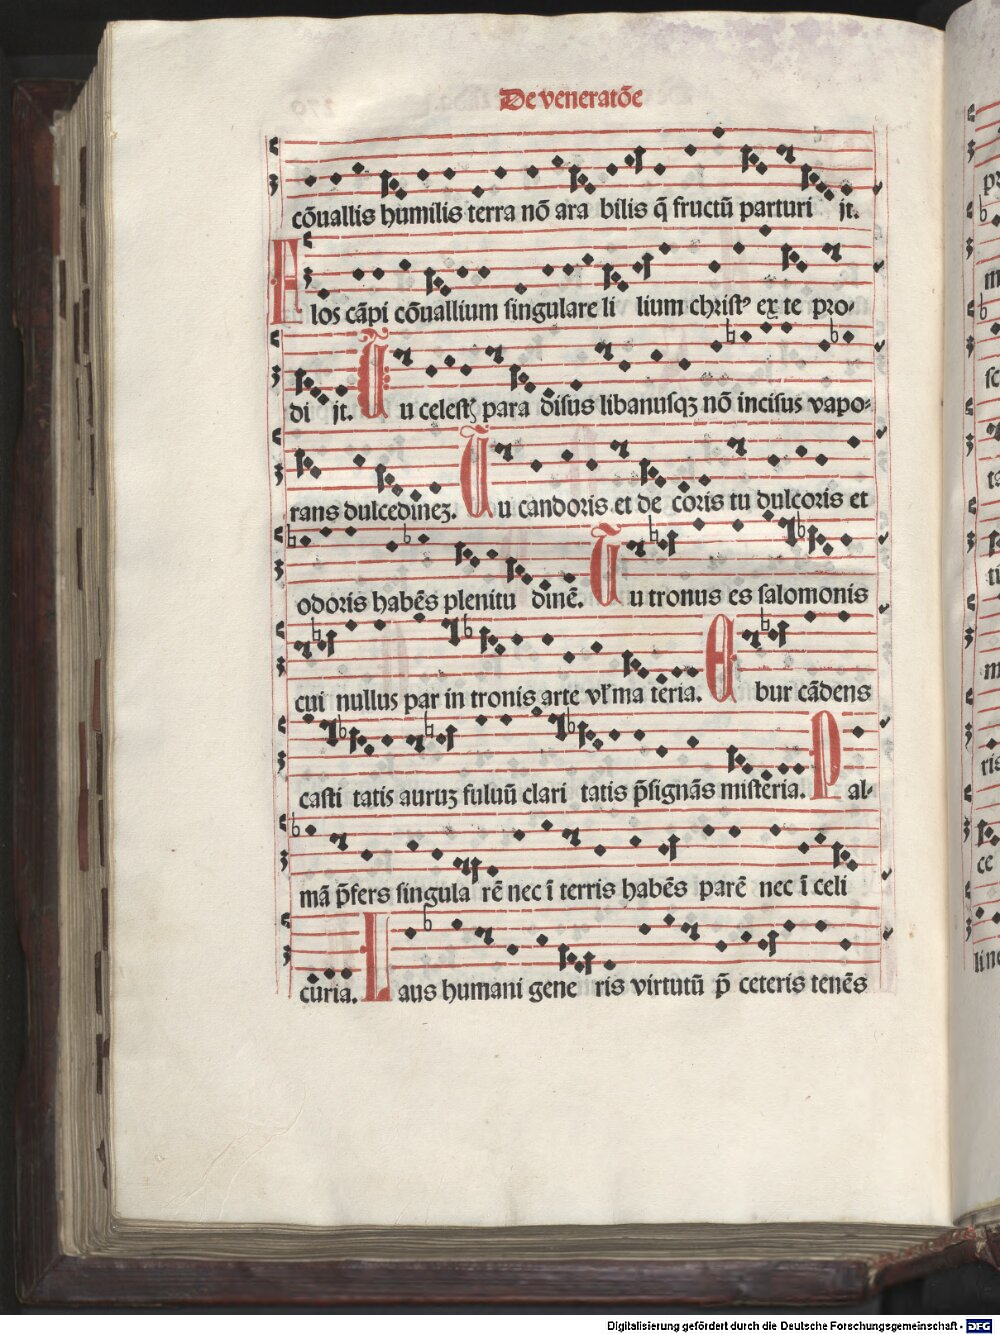 De veneratõe
cõuallis humilis terra nõ ara bilis q̃ fructũ parturi jt.
Flos cãpi cõuallium singulare li lium christꝰ ex te pro-
di jt. Tu celestꝭ para disus libanusqꝫ nõ incisus vapo-
rans dulcedineꝫ. Tu candoris et de coris tu dulcoris et
odoris habẽs plenitu dinẽ. Tu tronus es salomonis
cui nullus par in tronis arte vl' ma teria. Ebur cãdens
casti tatis auruꝫ fuluũ clari tatis p̃signãs misteria. Pal-
mã p̃fers singula rẽ nec ĩ terris habẽs parẽ nec ĩ celi
curia. Laus humani gene ris virtutũ p̃ ceteris tenẽs
Digitalisierung gefördert durch die Deutsche Forschungsgemeinschaft - DFG